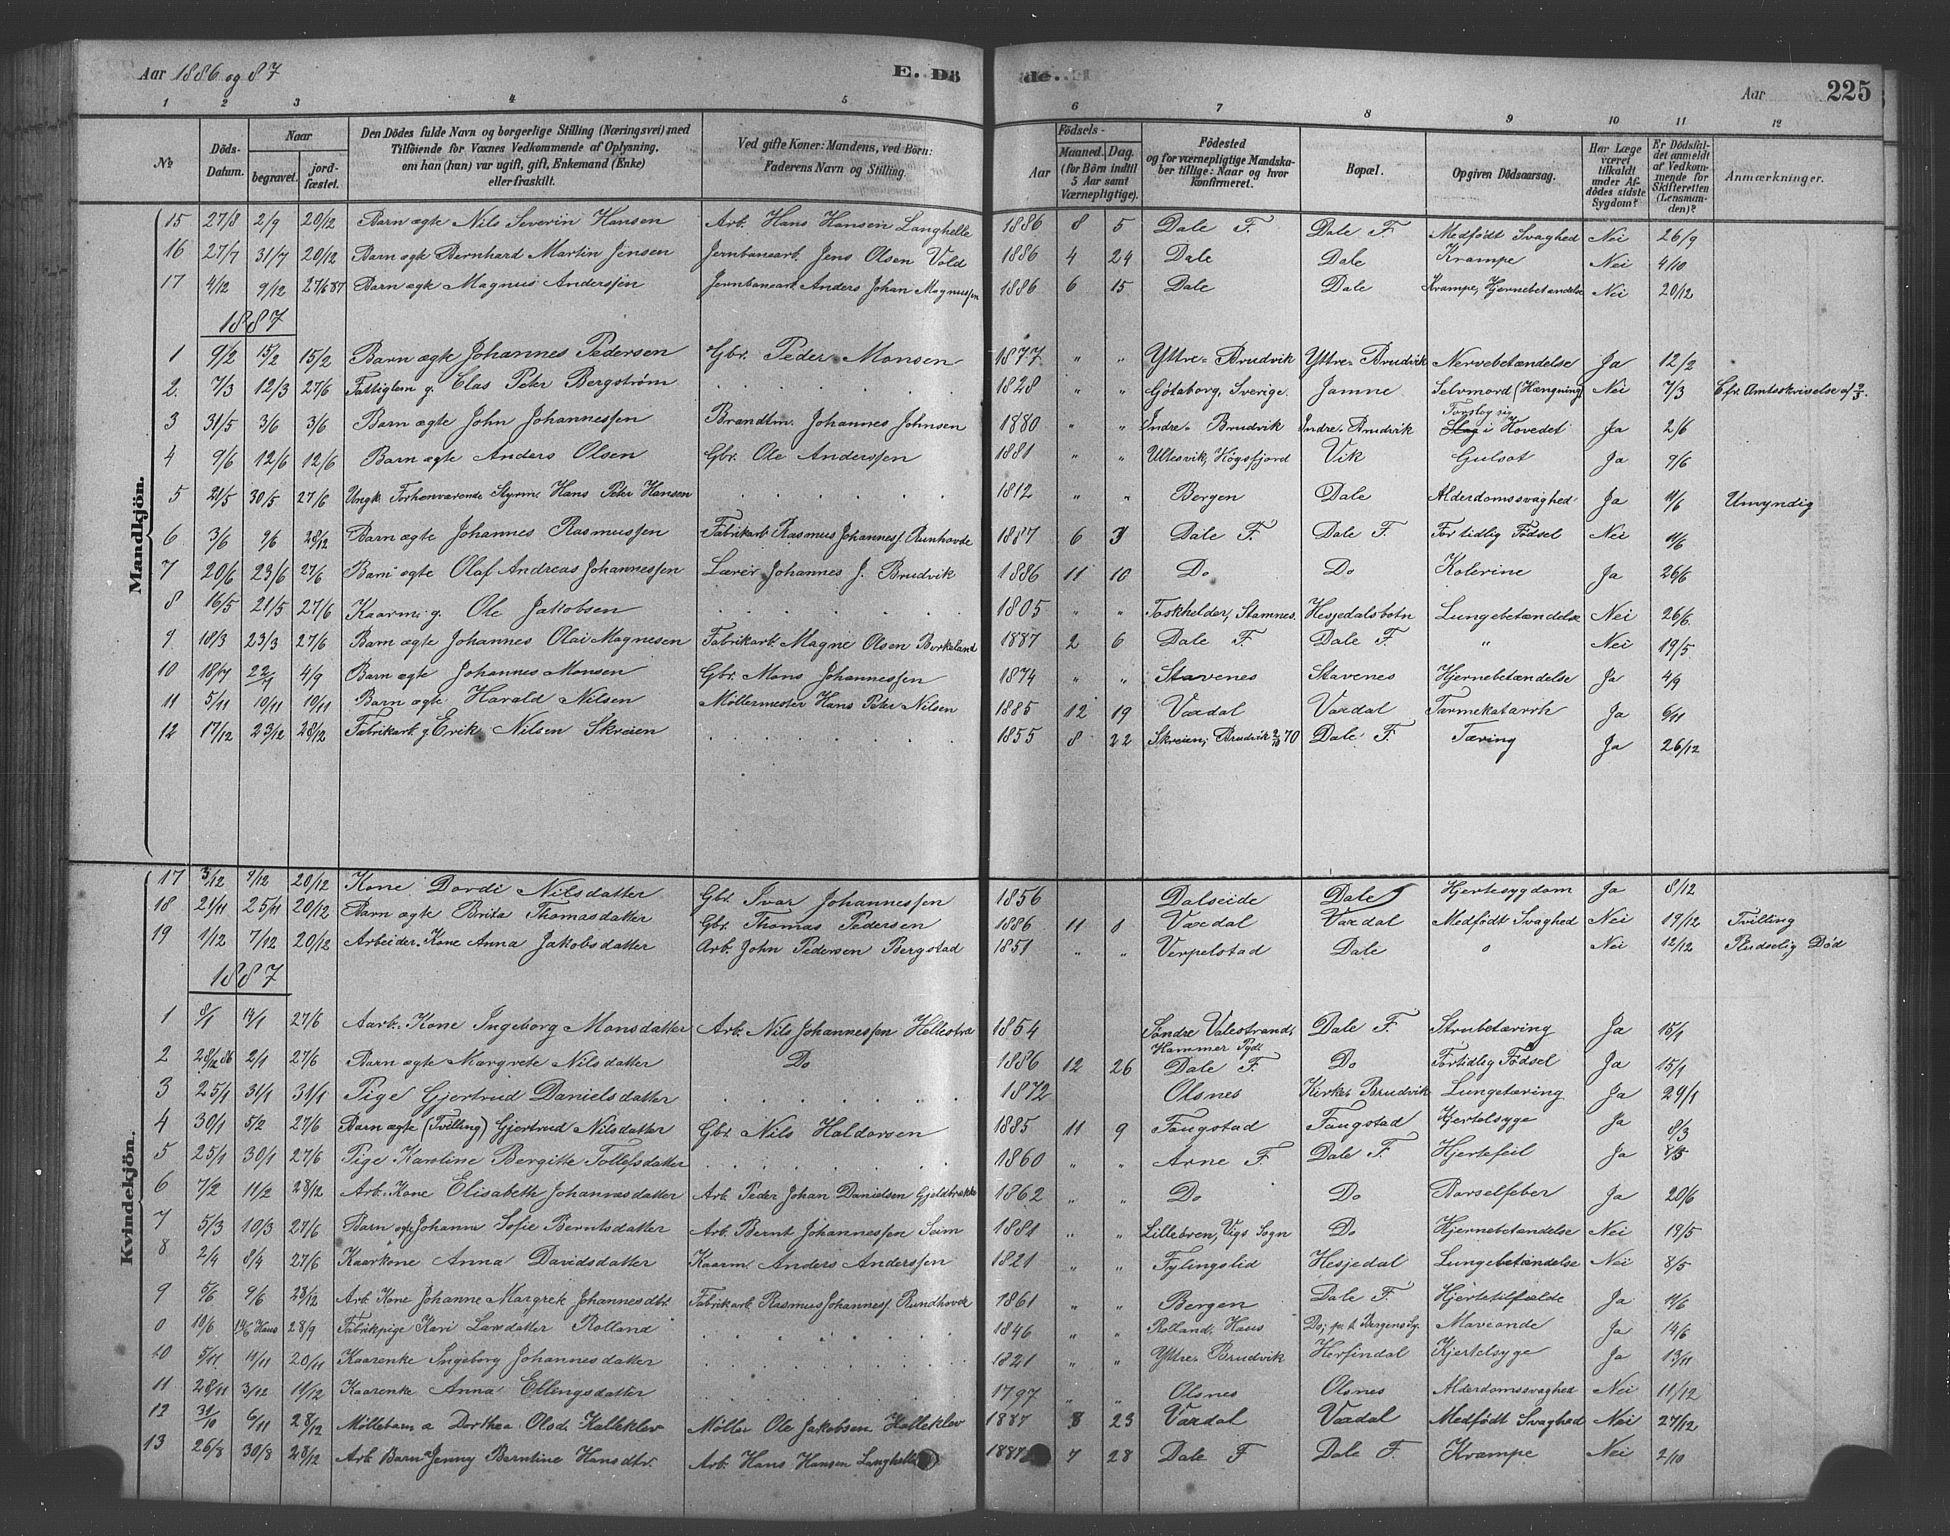 Aar 1886 og 87 E. Dö
de. Aar 225
1 2 3 4 5 6 7 8 9 10 11 12
№ Döds-Datum. Naar begravet. jordfæstet. Den Dödes fulde Navn og borgerlige Stilling (Næringsvei) med Tilföiende for Voxnes Vedkommende af Oplysning, om han (hun) var ugift, gift, Enkemand (Enke) eller fraskilt. Ved gifte Koner: Mandens, ved Börn: Faderens Navn og Stilling. Aar Födsels- Maaned. Dag. (for Börn indtil 5 Aar samt Værnepligtige). Födested og for værnepligtige Mandskaber tillige: Naar og hvor konfirmeret. Bopæl. Opgiven Dödsaarsag. Har Læge været tilkaldt under Afdödes sidste Sygdom? Er Dödsfaldet anmeldt af Vedkommende for Skifteretten (Lensmanden)? Anmærkninger.
Mandkjön.
15 27/8 2/9 20/12 Barn ægte Nils Severin Hansen Arb. Hans Hansen Langhelle 1886 8 5 Dale F. Dale F. Medfödt Svaghed Nei 26/9
16 27/7 31/7 20/12 Barn ægte Bernhard Martin Jensen Jernbanearb. Jens Olsen Vold 1886 4 24 Dale Dale Krampe Nei 4/10
17 4/12 9/12 27/6 87 Barn ægte Magnus Anderssen Jernbanearb. Anders Johan Magnussen 1886 6 15 Dale Dale Krampe, Hjernebetændelse Nei 20/12
1887
1 9/2 15/2 15/2 Barn ægte Johannes Pedersen Gbr. Peder Monsen 1877 " " Yttre-Brudvik Yttre-Brudvik Nervebetændelse Ja 12/2
2. 7/3 12/3 27/6 Fattiglem g. Clas Peter Bergström 1828 " " Götaborg, Sverige. Jamne Selvmord (Hængning) Nei 7/3 Cfr. Amtsskrivelse af 9/3.
3 31/5 3/6 3/6 Barn ægte John Johannessen Brandtm. Johannes Johnsen 1880 " " Indre-Brudvik Indre-Brudvik Forslog sig i Hovedet Ja 2/6
4 9/6 12/6 12/6 Barn ægte Anders Olsen Gbr. Ole Anderssen 1881 " " Ultesvik, Högsfjord Vik Gulsot Ja 9/6
5 21/5 30/5 27/6 Ungk. Forhenværende Styrm. Hans Peter Hansen 1812 " " Bergen Dale Alderdomssvaghed Ja 11/6 Umyndig
6 3/6 9/6 28/12 Barn ægte Johannes Rasmussen Fabrikarb. Rasmus Johanness. Runhovde 1887 6 3 Dale F. Dale F. For tidlig Födsel Nei 11/6
7 20/6 23/6 27/6 Barn ægte Olaf Andreas Johannessen Lærer Johannes J. Brudvik 1886 11 10 Do Do Kolerine Ja 26/6
8 16/5 21/5 27/6 Kaarm. g. Ole Jakobsen 1805 " " Toskhelder, Stamnes. Hesjedalsbotn Lungebetændelse Nei 26/6.
9 18/3 23/3 27/6 Barn ægte Johannes Olai Magnesen Fabrikarb. Magne Olsen Birkeland 1887 2 6 Dale F. Dale F. " Nei 19/5
10 18/7 22/7 4/9 Barn ægte Johannes Monsen Gbr. Mons Johannessen 1874 " " Stavenes Stavenes Hjernebetændelse Ja 4/9
11 5/11 10/11 10/11 Barn ægte Harald Nilsen Möllermester Hans Peter Nilsen 1885 12 19 Vaxdal Vaxdal Tarmekatarrh Ja 6/11
12 17/12 23/12 28/12 Fabrikarb. g. Erik Nilsen Skreien 1855 8 22 Skreien, Brudvik 2/10 70 Dale F. Tæring Ja 26/12
Kvindekjön.
17 3/12 9/12 20/12 Kone Dordi Nilsdatter Gbr. Ivar Johannessen 1856 Dalseide Dale Hjertesygdom Ja 8/12
18 21/11 25/11 20/12 Barn ægte Brita Thomasdatter Gbr. Thomas Pedersen 1886 11 1 Vaxdal Vaxdal Medfödt Svaghed Nei 19/12 Tvilling
19 1/12 7/12 20/12 Arbeider.Kone Anna Jakobsdatter Arb. John Pedersen Bergstad 1851 " " Verpelstad Dale Nei 12/12 Pludselig Död
1887
1 8/1 13/1 27/6 Aarb. Kone Ingeborg Monsdatter Arb. Nils Johannessen Hellestræ 1854 Söndre Valestrand, Hammer Pgd. Dale F. Strubetæring Ja 15/1
2 28/12 86 2/1 27/6 Barn ægte Margrete Nilsdatter Do 1886 12 26 Dale F. Do Fortidlig Födsel Ja 15/1
3 25/1 31/1 31/1 Pige Gjertrud Danielsdatter 1872 Olsnes Kirke-Brudvik Lungetæring Ja 29/1
4 30/1 5/2 27/6 Barn ægte (Tvilling) Gjertrud Nilsdatter Gbr. Nils Haldorsen 1885 11 9 Fougstad Fougstad Kjertelsyge Ja 8/3
5 25/1 30/1 27/6 Pige Karoline Bergitte Tollefsdatter 1860 " " Arne F. Dale F. Hjertefeil Ja 8/3
6 7/2 11/2 28/12 Arb. Kone Elisabeth Johannesdatter Arb. Peder Johan Danielsen Gjeldbrekke 1862 " " Do Do Barselfeber Ja 20/6
7 5/3 10/3 27/6 Barn ægte Johanne Sofie Berntsdatter Arb. Bernt Johannessen Seim 1881 " " Lilleören, Vigs Sogn Do Hjernebetændelse Nei 19/5
8 2/4 8/4 27/6 Kaarkone Anna Davidsdatter Kaarm. Anders Anderssen 1821 " " Fylingslid Hesjedal Lungebetændelse Nei 8/5
9 5/6 9/6 28/12 Arb. Kone Johanne Margrete Johannesdtr. Fabrikarb. Rasmus Johanness. Rundhovde 1861 " " Bergen Dale F. Hjertetilfælde Ja 11/6
0 10/6 14/6 Haus 28/9 Fabrikpige Kari Larsdatter Rolland 1846 " " Rolland, Haus Do, p. t. Bergens Sy. Maveonde Ja 14/6
10 5/11 11/11 20/11 Kaarenke Ingeborg Johannesdatter 1821 " " Yttre-Brudvik Herfindal Kjertelsyge Ja 13/11
11 28/11 3/12 11/12 Kaarenke Anna Ellingsdatter 1797 " " Olsnes Olsnes Alderdomssvaghed Nei 11/12
12 31/10 6/11 28/12 Möllebarn æ Dorthea Olsd. Kalleklev Möller Ole Jakobsen Kalleklev 1887 8 23 Vaxdal Vaxdal Medfödt Svaghed Nei 27/12
13 26/8 30/8 28/12 Arb. Barn æ Jenny Berntine Hansdtr. Arb. Hans Hansen Langhelle 1887 7 28 Dale F. Dale F. Krampe Nei 2/10